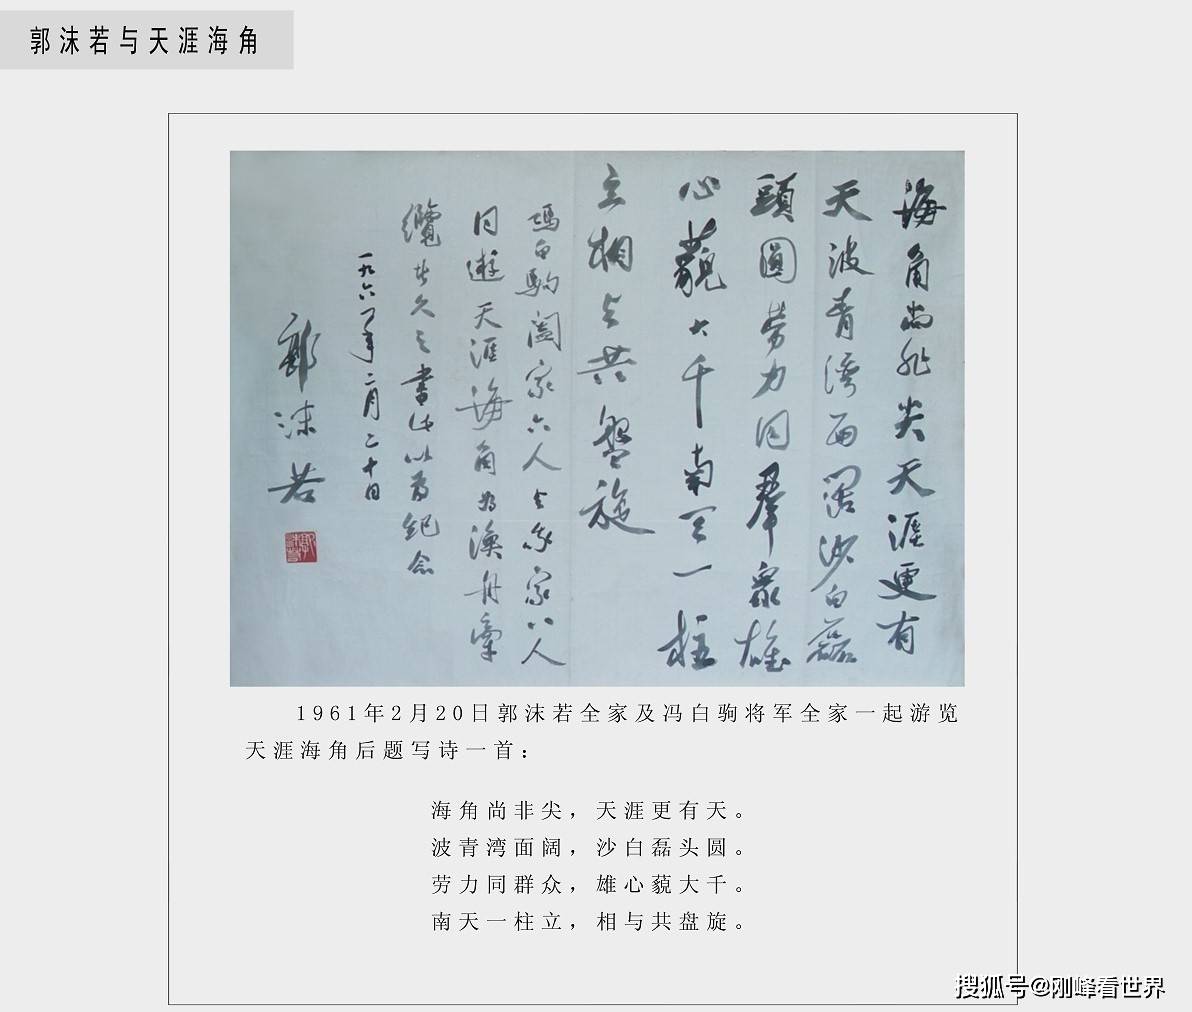 郭沫若与天涯海角
海角尚非尖天涯更有
天波青湾面阔沙白磊
頭圓劳力同群众雄
心藐大千南天一柱
立相与共盤旋
馮白驹阖家六人与我家八人
同遊天涯海角为渙舟牽
纜
書此以為紀念
一九六一年二月二十日
郭沫若
1961年2月20日郭沫若全家及冯白驹将军全家一起游览
天涯海角后题写诗一首：
海角尚非尖，天涯更有天。
波青湾面阔，沙白磊头圆。
劳力同群众，雄心藐大千。
南天一柱立，相与共盘旋。
搜狐号@刚峰看世界